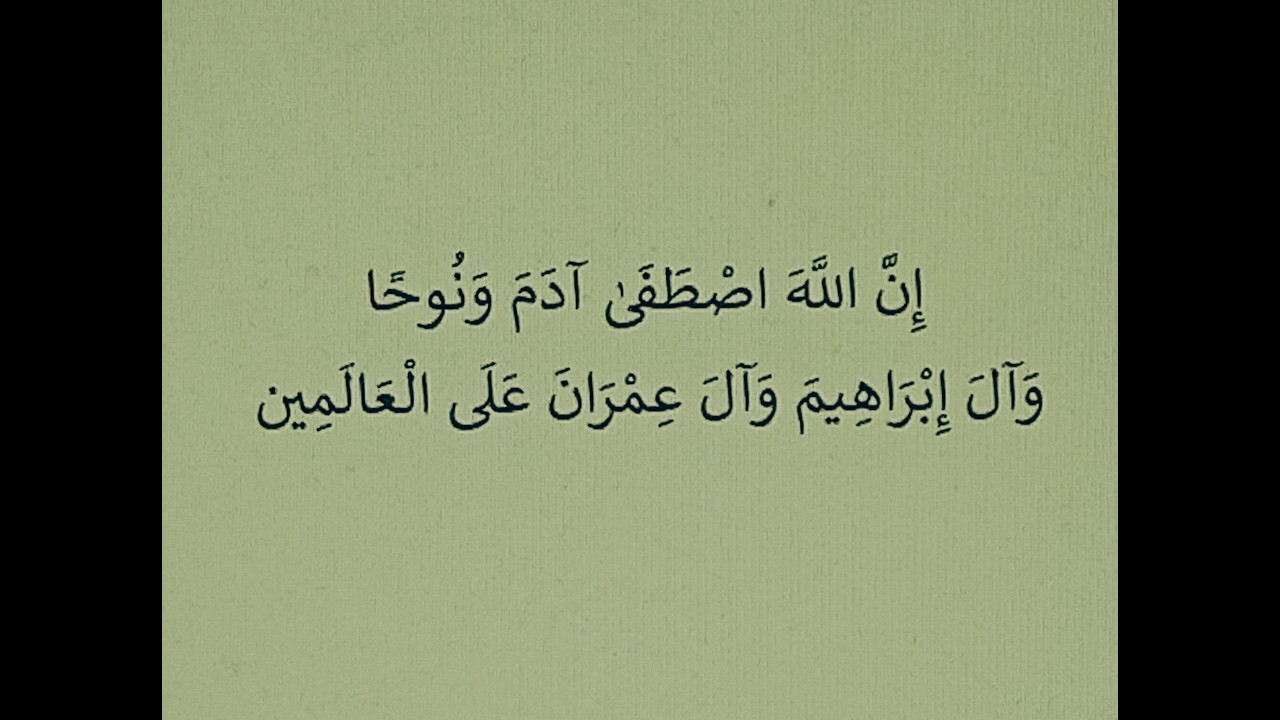 إِنَّ اللَّهَ اصْطَفَىٰ آدَمَ وَنُوحًا
وَآلَ إِبْرَاهِيمَ وَآلَ عِمْرَانَ عَلَى الْعَالَمِين